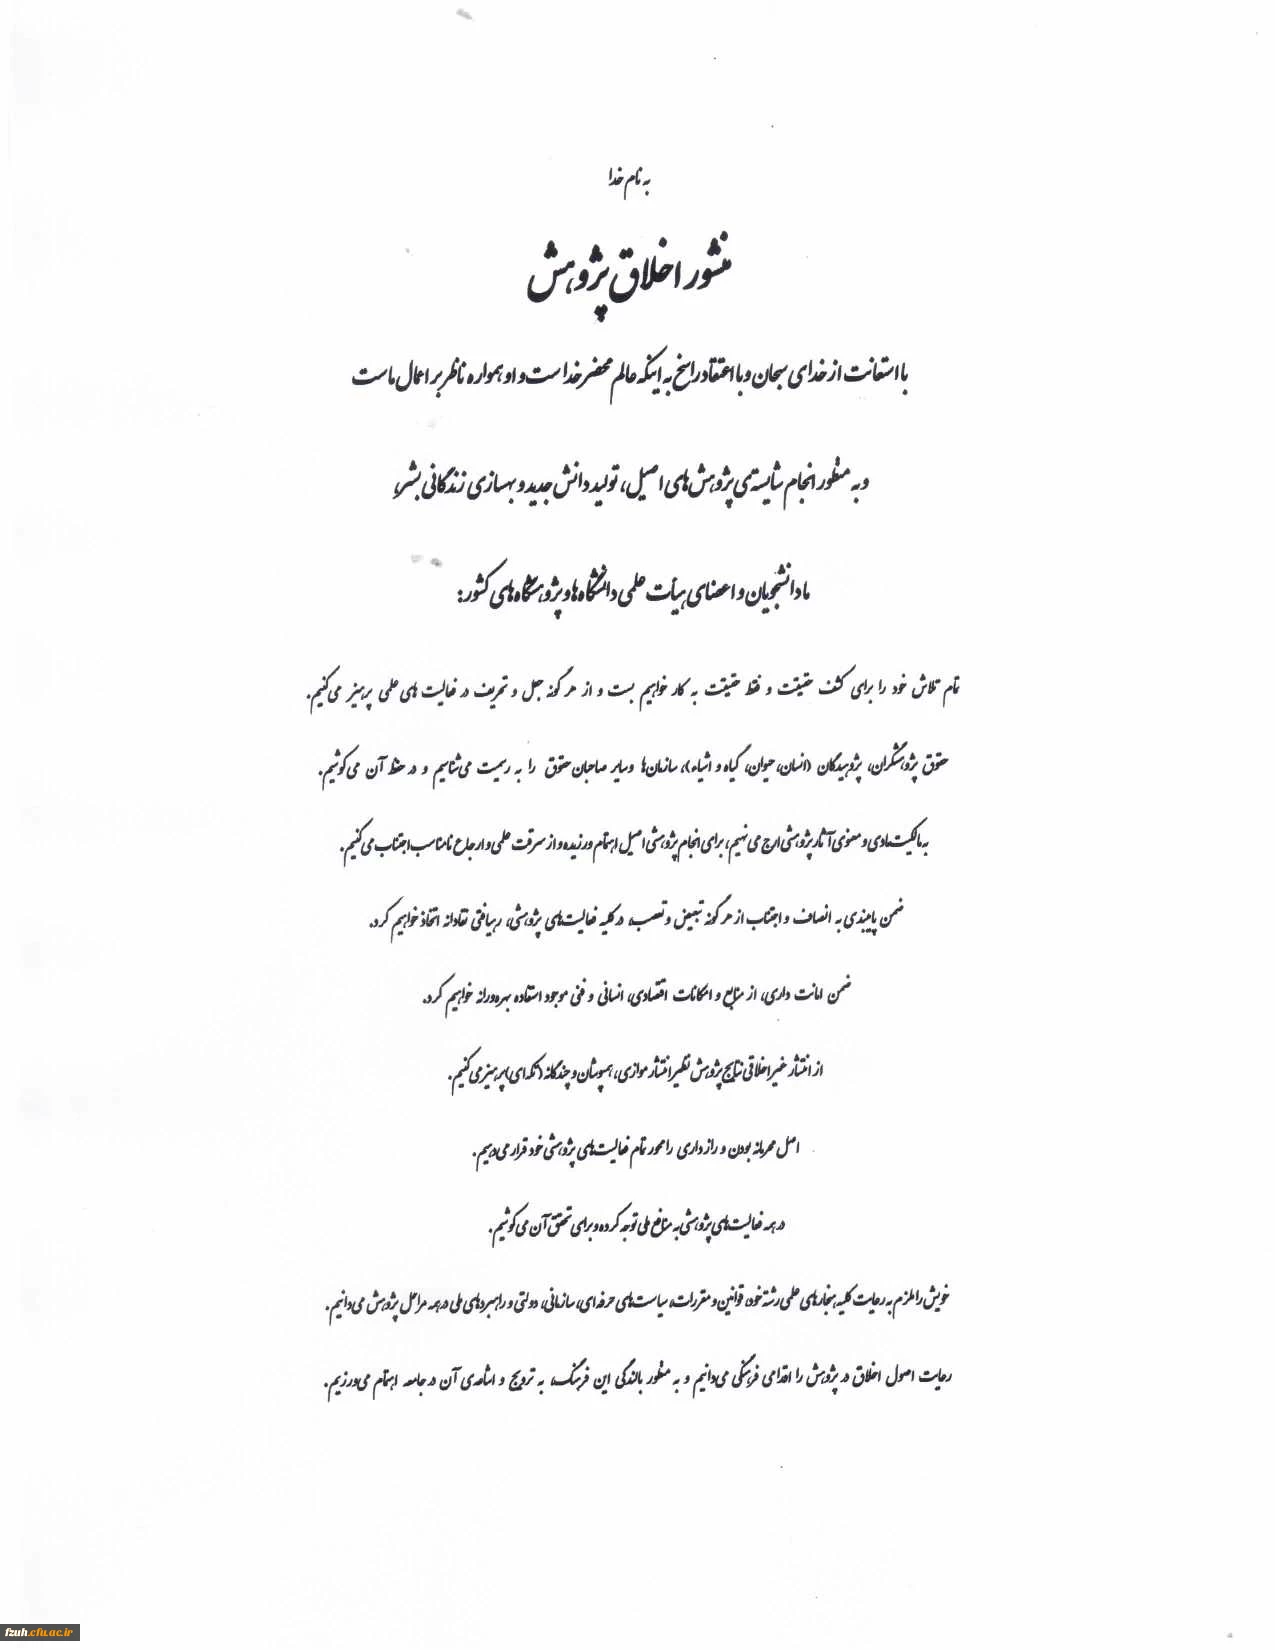 به نام خدا
منشور اخلاق پژوهش
با استعانت از خدای سبحان و با اعتقاد راسخ به اینکه عالم محضر خداست و او همواره ناظر بر اعمال ماست
و به منظور انجام شایسته‌ی پژوهش‌های اصیل، تولید دانش جدید و بهسازی زندگانی بشر،
ما دانشجویان و اعضای هیأت علمی دانشگاه‌ها و پژوهشگاه‌های کشور:
تمام تلاش خود را برای کشف حقیقت و فقط حقیقت به کار خواهیم بست و از هر گونه جعل و تحریف در فعالیت های علمی پرهیز می‌کنیم.
حقوق پژوهشگران، پژوهیدگان (انسان، حیوان، گیاه و اشیاء)، سازمان‌ها و سایر صاحبان حقوق را به رسمیت می‌شناسیم و در حفظ آن می‌کوشیم.
به مالکیت مادی و معنوی آثار پژوهشی ارج می نهیم، برای انجام پژوهشی اصیل اهتمام ورزیده و از سرقت علمی و ارجاع نامناسب اجتناب می‌کنیم.
ضمن پایبندی به انصاف و اجتناب از هر گونه تبعیض و تعصب، در کلیه فعالیت‌های پژوهشی، رهیافتی نقادانه اتخاذ خواهیم کرد.
ضمن امانت داری، از منابع و امکانات اقتصادی، انسانی و فنی موجود استفاده بهره‌ورانه خواهیم کرد.
از انتشار غیراخلاقی نتایج پژوهش نظیر انتشار موازی، همپوشان و چندگانه (تکه‌ای) پرهیز می‌کنیم.
اصل محرمانه بودن و رازداری را محور تمام فعالیت‌های پژوهشی خود قرار می‌دهیم.
در همه فعالیت‌های پژوهشی به منافع ملی توجه کرده و برای تحقق آن می‌کوشیم.
خویش را ملزم به رعایت کلیه هنجارهای علمی رشته خود، قوانین و مقررات، سیاست‌های حرفه‌ای، سازمانی، دولتی و راهبردهای ملی در همه مراحل پژوهش می‌دانیم.
رعایت اصول اخلاق در پژوهش را اقدامی فرهنگی می‌دانیم و به منظور بالندگی این فرهنگ، به ترویج و اشاعه‌ی آن در جامعه اهتمام می‌ورزیم.
fzuh.cfu.ac.ir